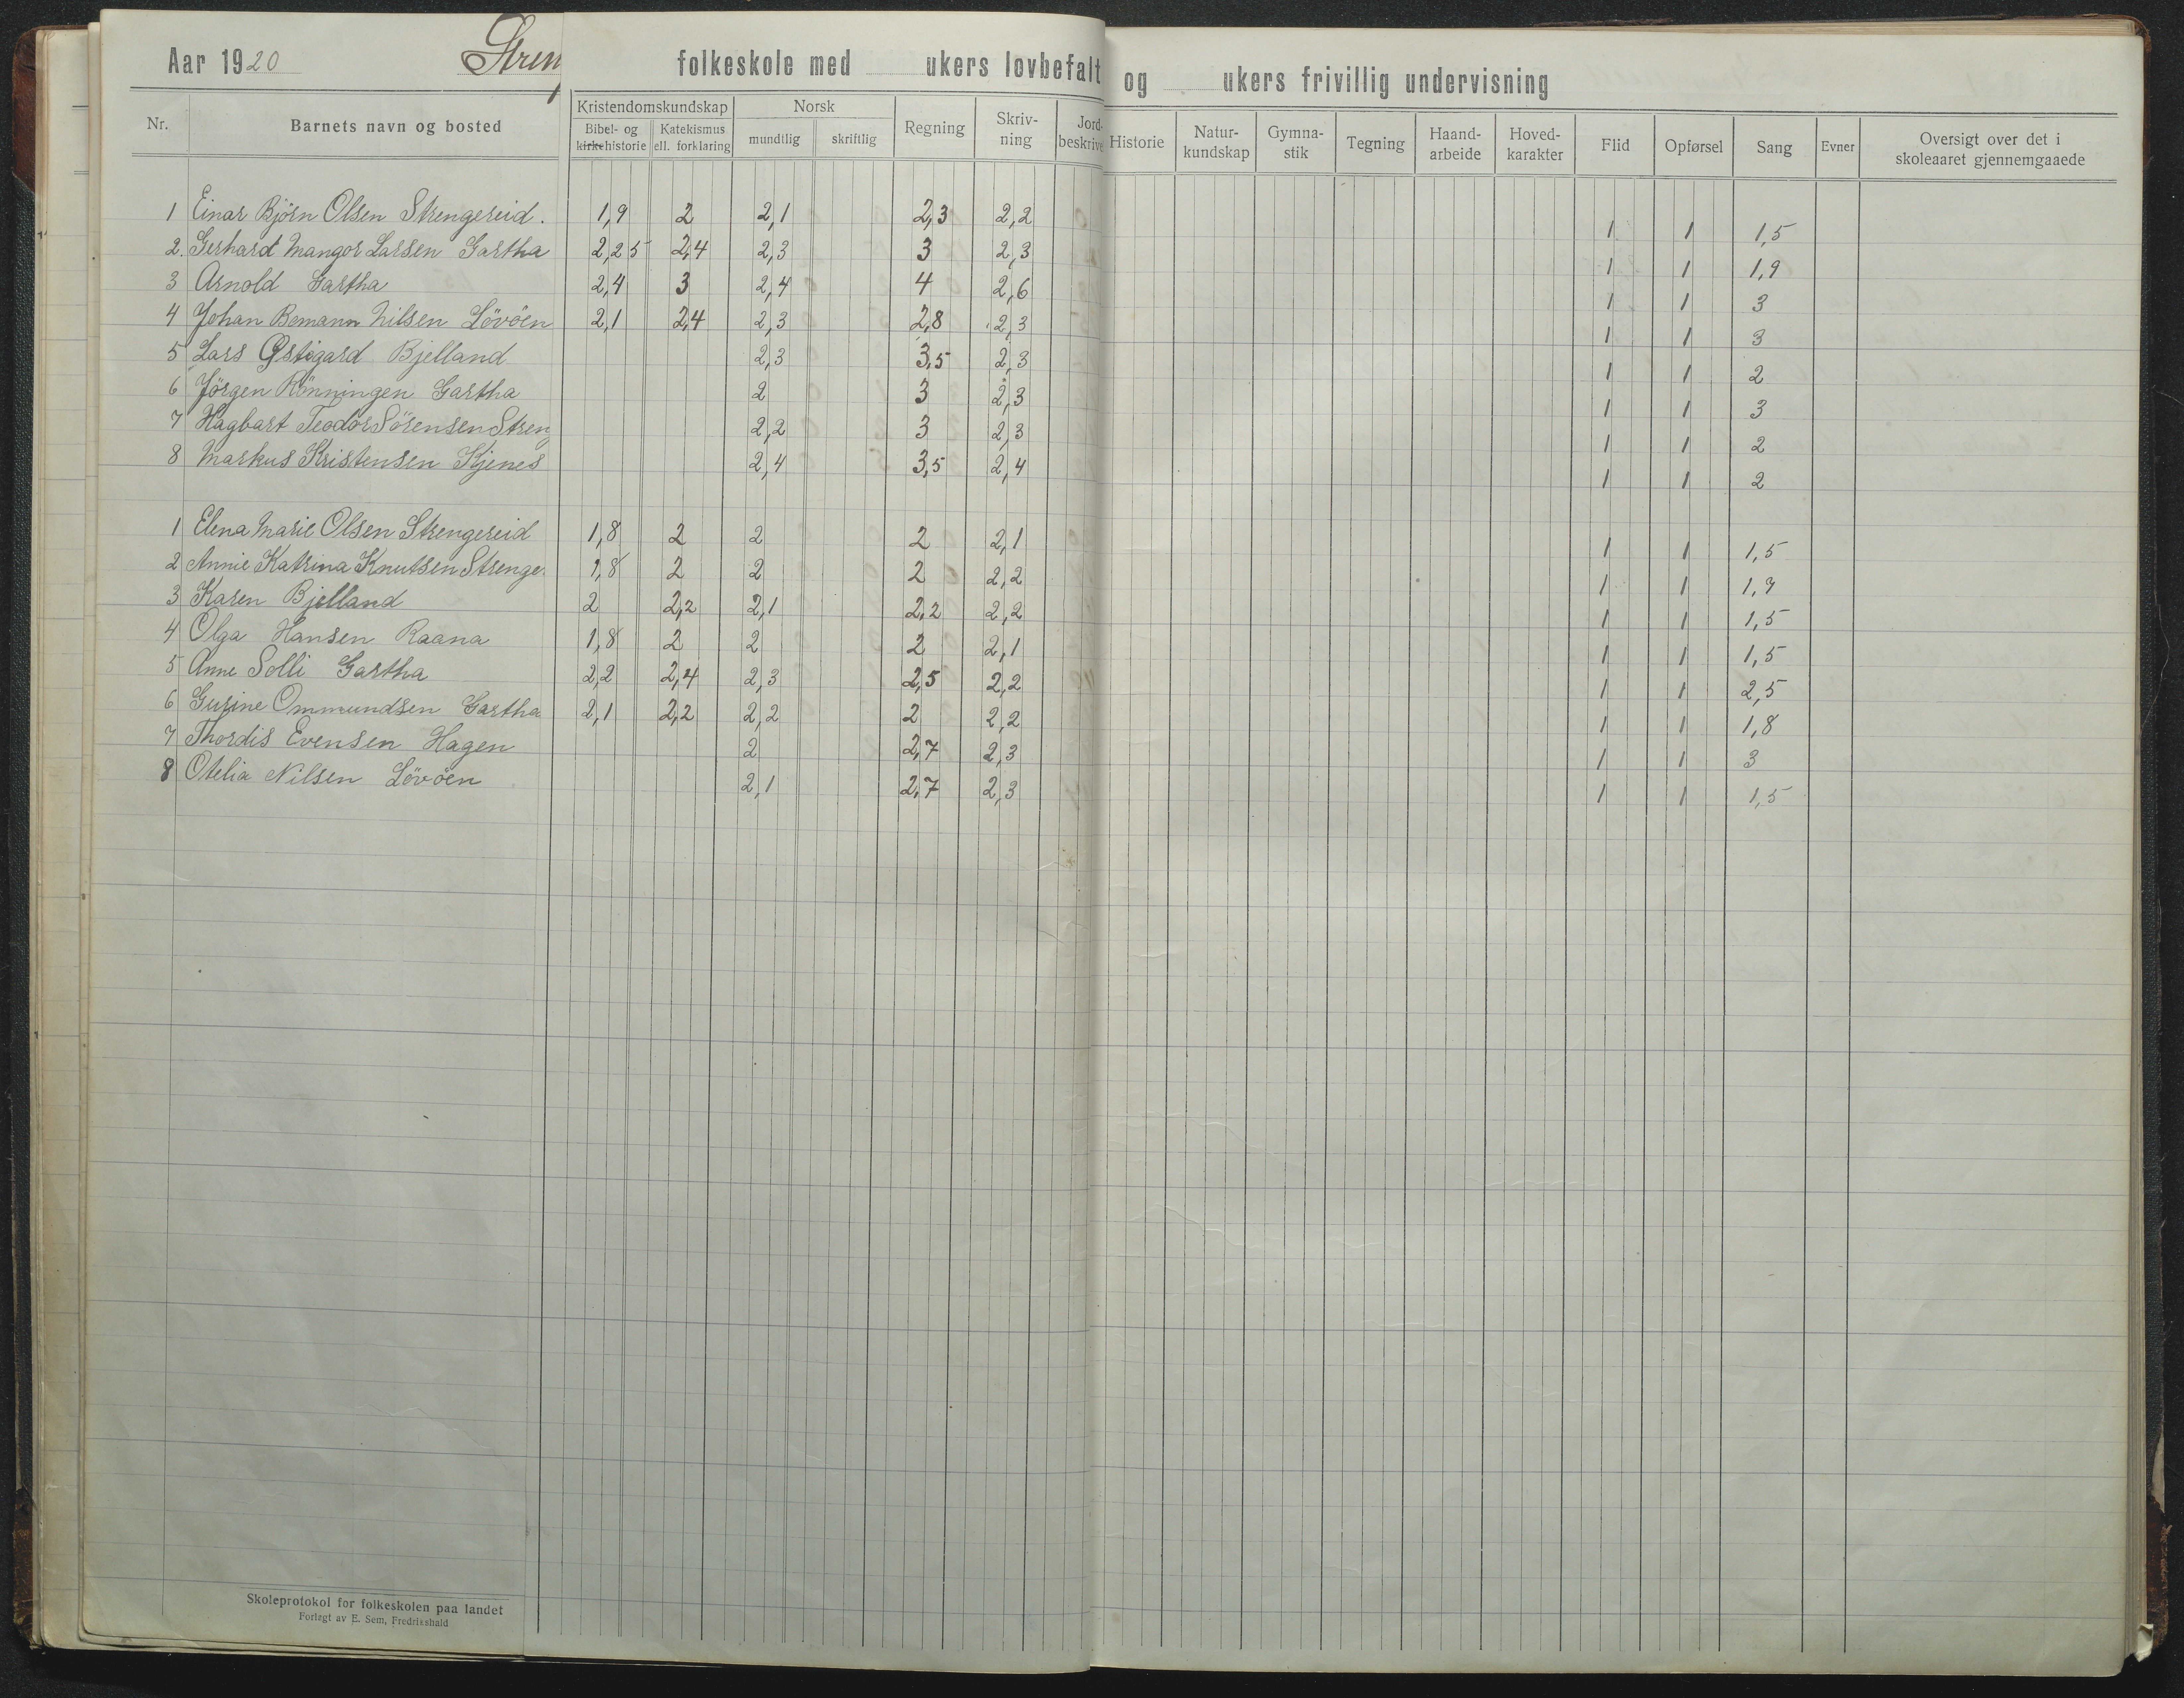 Aar 1920 Stren folkeskole med ukers lovbefalt og ukers frivillig undervisning
Nr. Barnets navn og bosted Kristendomskundskap Bibel- og kirkehistorie Katekismus ell. forklaring Norsk mundtlig skriftlig Regning Skriv-ning Jord-beskrive Historie Natur-kundskap Gymna-stik Tegning Haand-arbeide Hoved-karakter Flid Opførsel Sang Evner Oversigt over det i skoleaaret gjennemgaaede
1 Einar Björn Olsen Strengereid. 1,9 2 2,1 2,3 2,2 1 1 1,5
2. Gerhard Mangor Larsen Gartha 2,25 2,4 2,3 3 2,3 1 1 1,9
3 Arnold Gartha 2,4 3 2,4 4 2,6 1 1 3
4 Johan Bemann Nilsen Lövöen 2,1 2,4 2,3 2,8 2,3 1 1 3
5 Lars Østigard Bjelland 2,3 3,5 2,3 1 1 2
6 Jörgen Rönningen Gartha 2 3 2,3 1 1 3
7 Hagbart Teodor Sörensen Streng 2,2 3 2,3 1 1 2
8 Markus Kristensen Kjenes 2,4 3,5 2,4 1 1 2
1 Elena Marie Olsen Strengereid 1,8 2 2 2 2,1 1 1 1,5
2 Annie Katrina Knutsen Strenge. 1,8 2 2 2 2,2 1 1 1,7
3 Karen Bjelland 2 2,2 2,1 2,2 2,2 1 1 1,5
4 Olga Hansen Raana 1,8 2 2 2 2,1 1 1 1,5
5 Anne Solli Gartha 2,2 2,4 2,3 2,5 2,2 1 1 2,5
6 Gurine Ommundsen Gartha 2,1 2,2 2,2 2 2,2 1 1 1,8
7 Thordis Evensen Hagen 2 2,7 2,3 1 1 3
8 Otelia Nilsen Lövöen 2,1 2,7 2,3 1 1 1,5
Skoleprotokol for folkeskolen paa landet
Forlagt av E. Sem, Fredrikshald